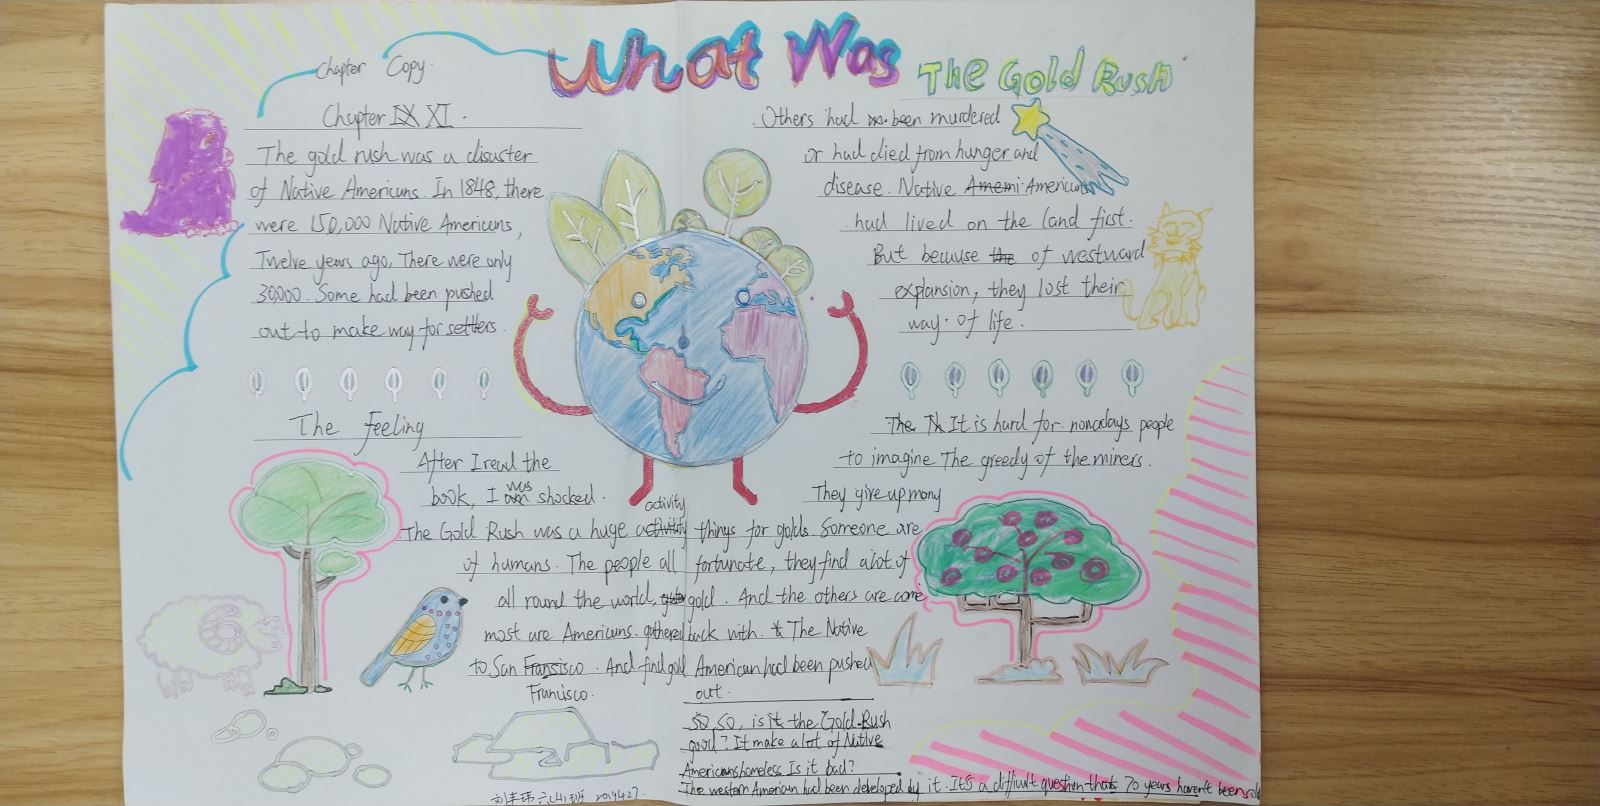 What Was The Gold Rush
Chapter Copy.
Chapter IX XI.
The gold rush was a disaster
of Native Americans. In 1848, there
were 150,000 Native Americans,
Twelve years ago, There were only
30,000. Some had been pushed
out to make way for settlers.
Others had been murdered
or had died from hunger and
disease. Native Amemi American
had lived on the land first.
But because the of westward
expansion, they lost their
way of life.
The Feeling
After I read the
book, I was shocked.
The Gold Rush was a huge activity activity
of humans. The people all
all round the world,
most are Americans. gathered
to San Fransisco. And find gold
Francisco.
The Th It is hard for nonadays people
to imagine The greedy of the miners.
They give up many
things for golds. Someone are
fortunate, they find a lot of
gold. And the others are come
back with. The Native
American had been pushed
out.
So, so, is it the Gold Rush
good? It make a lot of Native
Americans homeless Is it bad?
The western American had been developed by it. It's a difficult question that 70 years haven't been